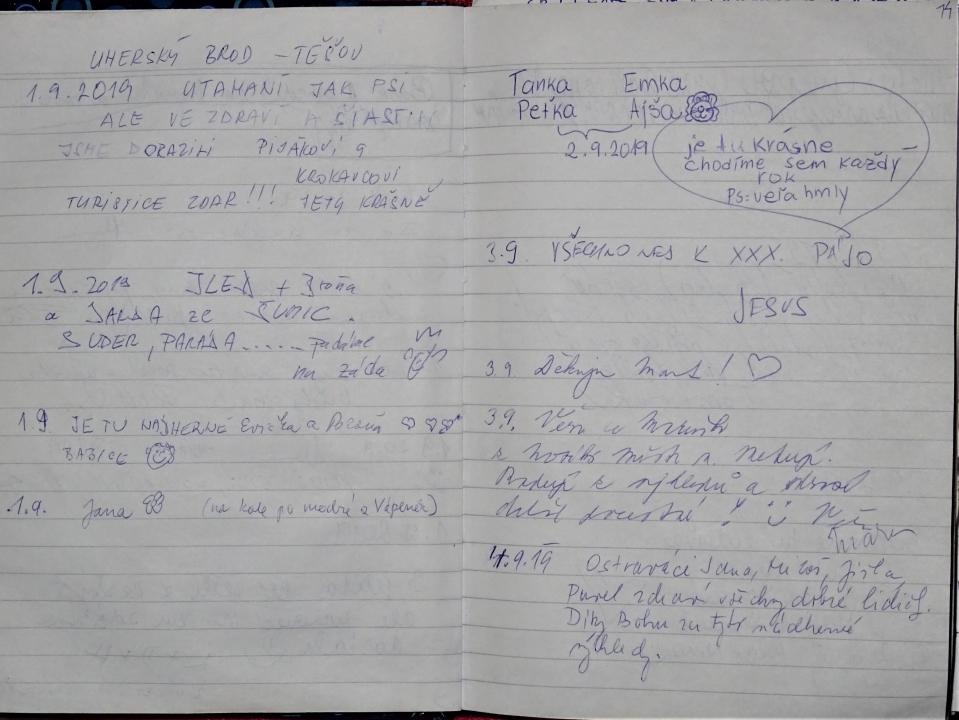 UHERSKÝ BROD - TĚŠOV
1.9.2019 UTAHANÍ JAK PSI
ALE VE ZDRAVÍ A ŠŤASTNI
JSME DORAZILI PIJÁKOVI A
KROKAVCOVI
TURISTICE ZDAR!!! JE TU KRÁSNĚ
1.9.2019 + Broňa
a JARDA ze ŠUMIC.
SUPER, PARÁDA...... padáme
na záda
1.9 JE TU NÁDHERNĚ Evička a
BABICE
1.9. Jana (na kole po modré z Vápenic)
14
Tanka Emka
Peťka Ajša
2.9.2019
je tu krásne
chodíme sem každý
rok
Ps: veľa hmly
3.9. VŠECHNO NEJ K XXX. PÁJO
JESUS
3.9 Děkuju ! ♡
3.9. Věra a
z a
z výhledů a
další
4.9.19 Ostraváci Jana, Miloš, Jirka,
Pavel zdraví všechny dobré lidičky.
Díky Bohu za tyto nádherné
výhledy.